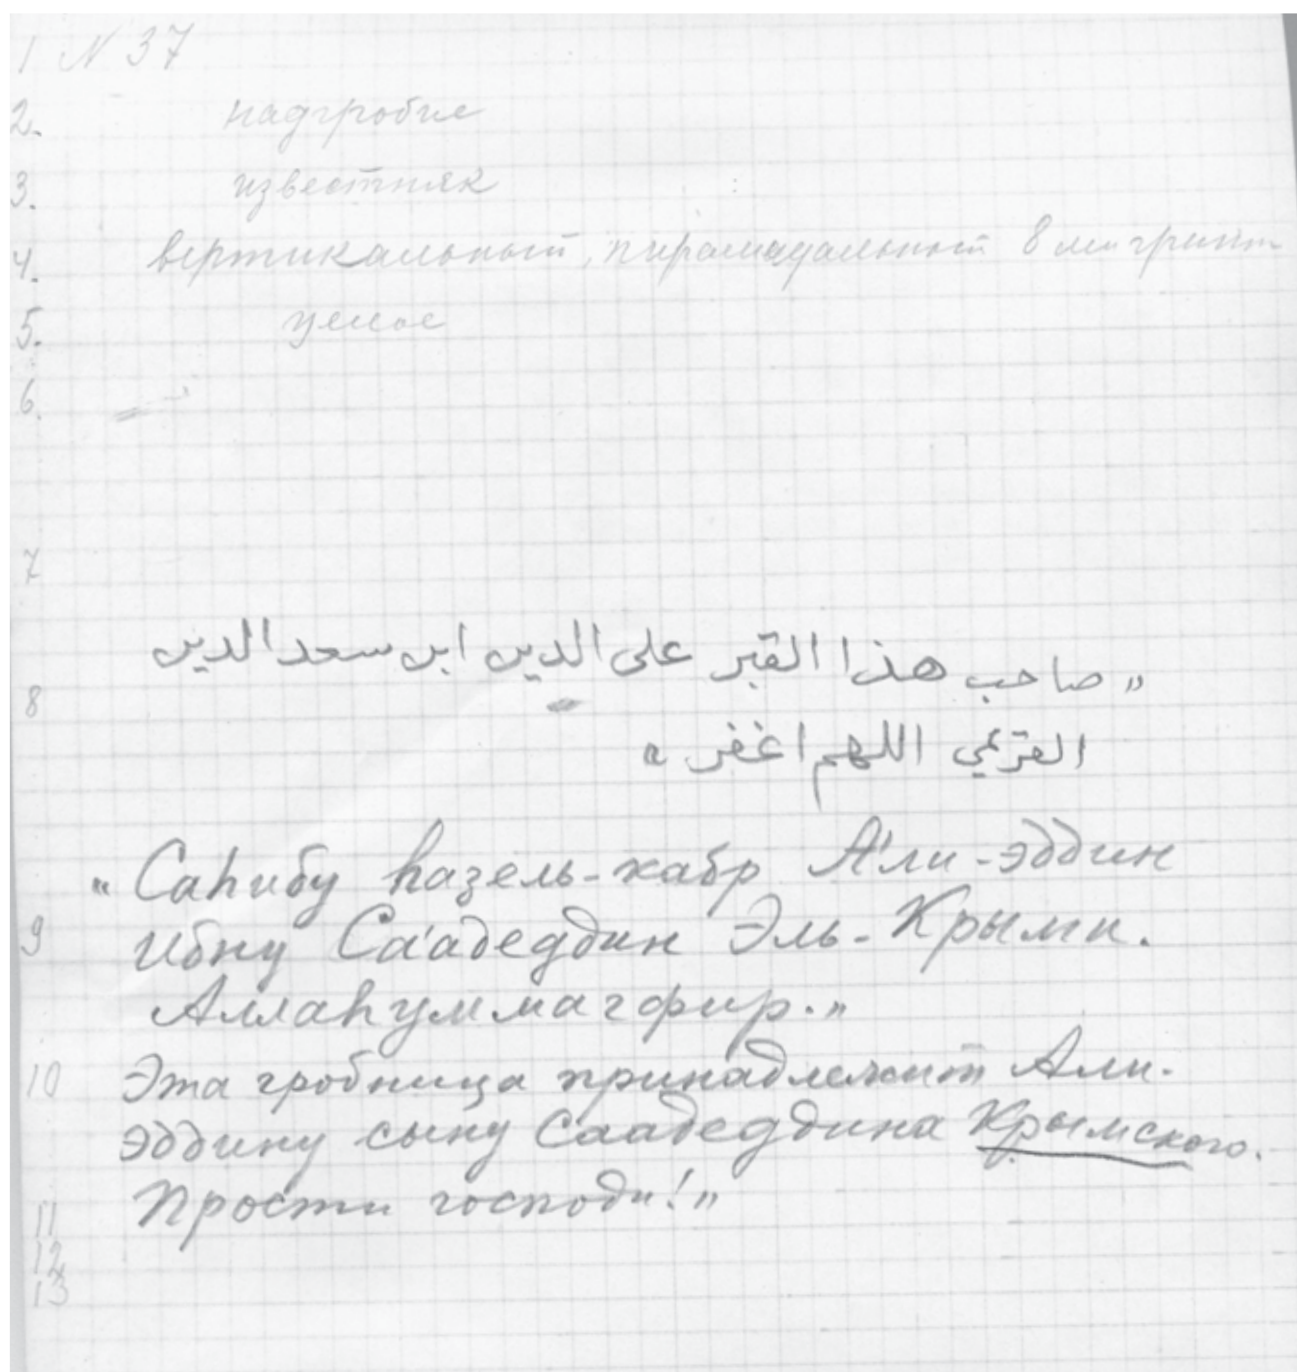 1 N 37
2. надгробие
3. известняк
4. вертикальный, пирамидальный
5.
6.
7
„ صاحب هذا القبر على الدين ابن سعد الدين
8
القريمي اللهم اغفر "
„ Саhибу hазель-хабр А'ли-эддин
9 ибну Са'адеддин Эль-Крыми.
Аллаhуммагфир."
10 Эта гробница принадлежит Али-
эддину сыну Саадеддина Крымского.
11 Прости господи!"
12
13